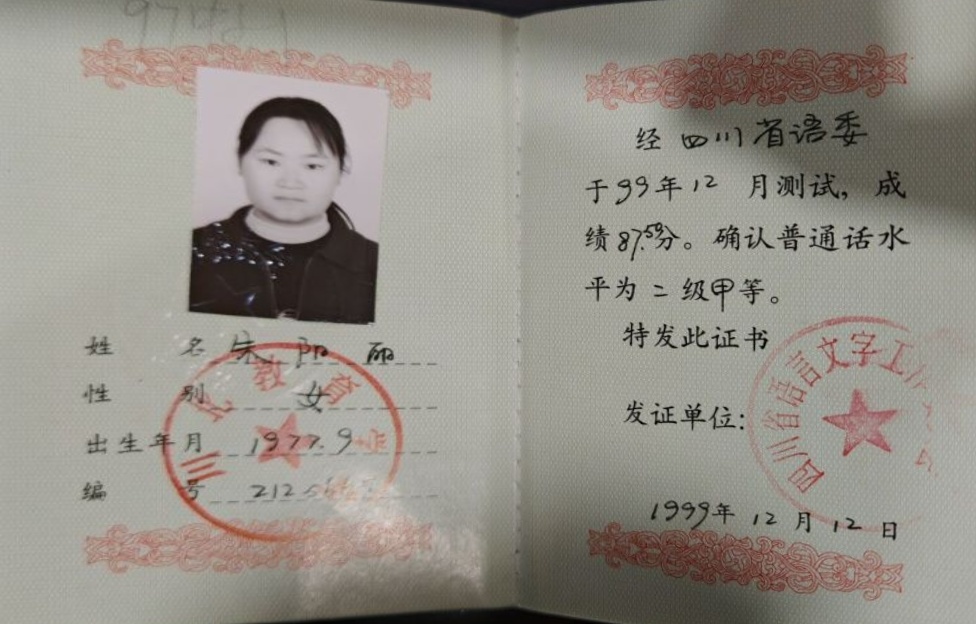 姓名 朱阳丽
性别 女
出生年月 1977.9
编号 212
经四川省语委
于99年12月测试，成
绩87.50分。确认普通话水
平为二级甲等。
特发此证书
发证单位：
四川省语言文字工
1999年12月12日